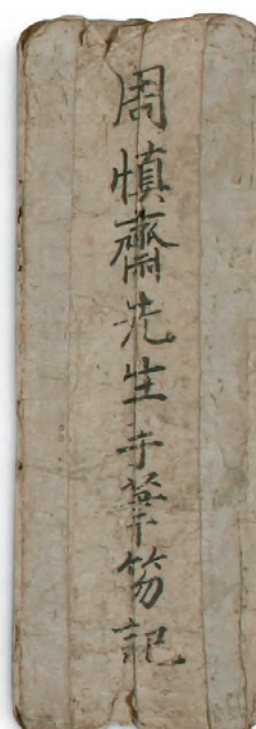 周慎齋先生手筆笏記